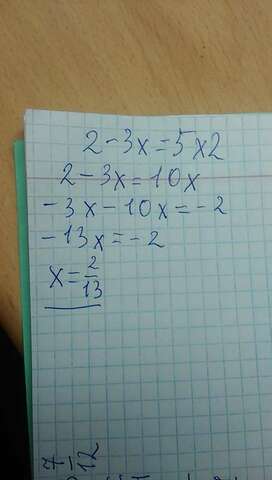 2-3x=5x2
2-3x=10x
-3x-10x=-2
-13x=-2
x=2/13